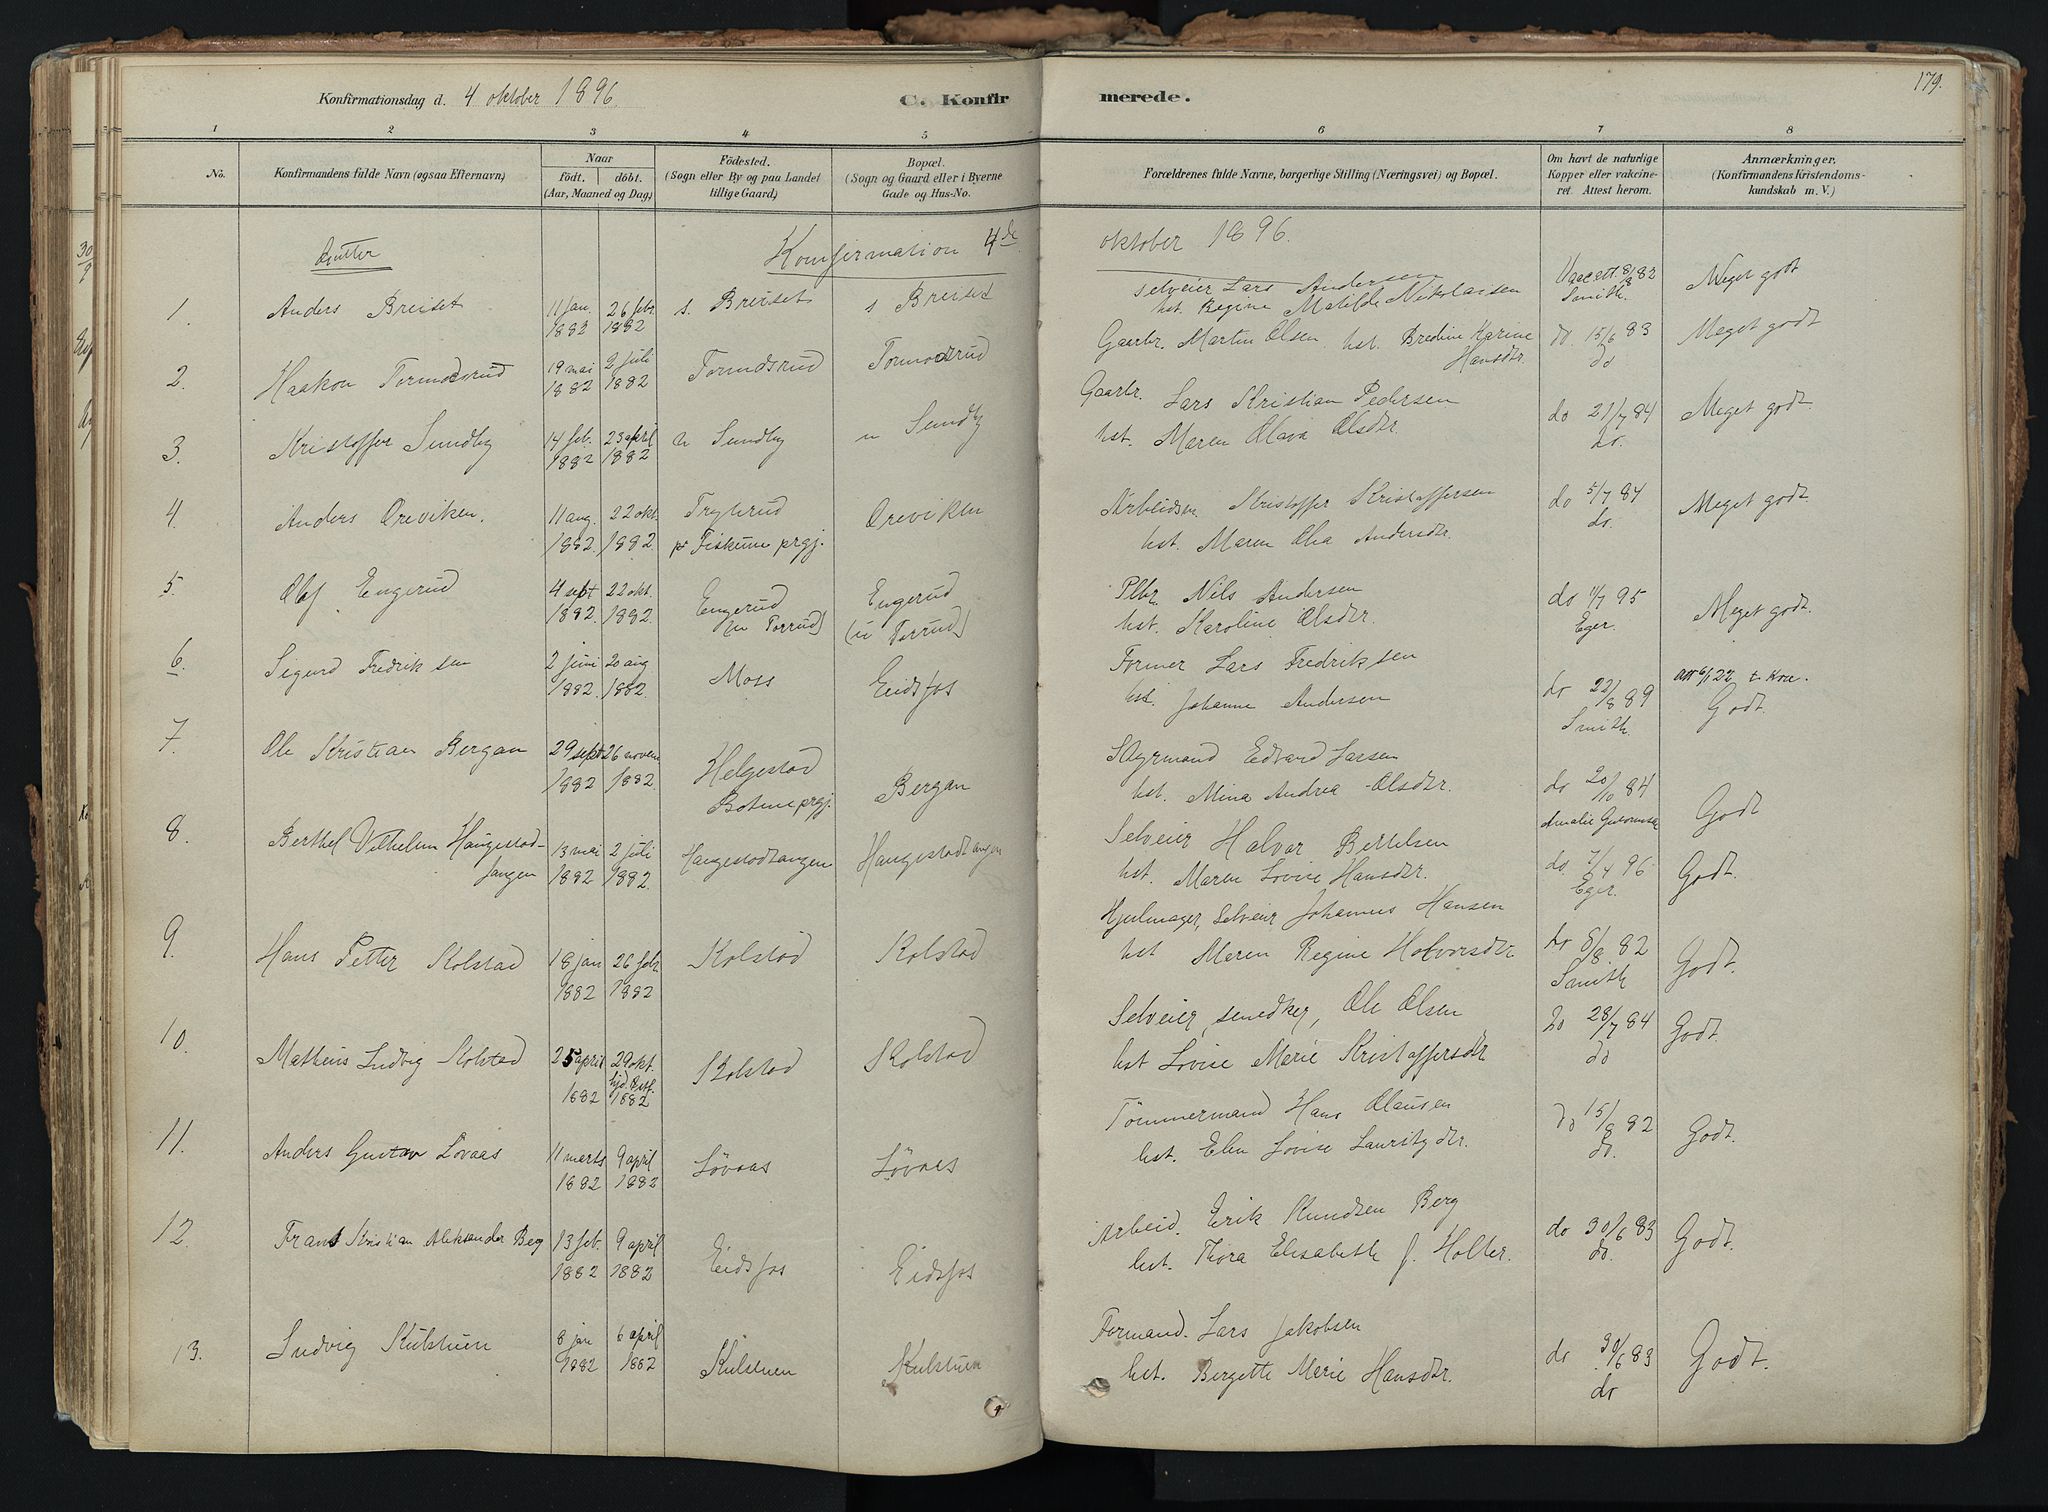 179.
Konfirmationsdag d. 4 oktober 1896. C. Konfirmerede.
1 2 3 4 5 6 7 8
No. Konfirmandens fulde Navn (ogsaa Efternavn) Naar født. døbt. (Aar, Maaned og Dag) Födested. (Sogn eller By og paa Landet tillige Gaard) Bopæl. (Sogn og Gaard eller i Byerne Gade og Hus-No. Forældrenes fulde Navne, borgerlige Stilling (Næringsvei) og Bopæl. Om havt de naturlige Kopper eller vakcineret. Attest herom. Anmærkninger. (Konfirmandens Kristendomskundskab m. V.)
Gutter Konfirmation 4de oktober 1896.
1. Anders Breiset 11 jan. 1882 26 febr. 1882 s. Breiset s Breiset Selveier Lars Andersen
hst. Regine Matilde Nikolaisen 8/8 82 Smith. Meget godt
2. Haakon Tormodsrud 19 mai 1882 2 juli 1882 Tormodsrud Tormodsrud Gaarbr. Martin Olsen hst. Bredine Karine
Hansdtr. do. 15/6 83 do Meget godt
3. Kristoffer Sundby 14 feb. 1882 23 april 1882 n Sundby n Sundby Gaarbr. Lars Kristian Pedersen
hst. Maren Olava Olsdtr. do 21/7 84 do. Meget godt.
4. Anders Oreviken. 11 aug. 1882 22 okt. 1882. Tryterud
pr Fiskum prgj. Oreviken Arbeidsm. Kristoffer Kristoffersen
hst. Maren Olia Andersdtr. do 5/7 84 do. Meget godt
5. Olaf Engerud 4 sept 1882. 22 okt. 1882. Engerud
(u Torrud) Engerud
(u Torrud) Plbr. Nils Andersen
hst. Karoline Olsdtr. do 4/7 95 Eger. Meget godt.
6. Sigurd Fredriksen 2 juni 1882. 20 aug 1882. Moss Eidsfos Former Lars Fredriksen
hst. Johanne Andersen do 22/8 89 Smith att 6/1 22 t. Kra.
Godt.
7. Ole Kristian Bergan 29 sept 1882 26 novem 1882 Helgestad
Botne prgj. Bergan Styrmand Edvard Larsen
hst. Mina Andrea Olsdtr. do 20/10 84 Amalie Godt
8. Berthel Vilhelm Haugestad-
tangen 13 mai 1882 2 juli 1882. Haugestadtangen Haugestadtangen Selveier Halvor Bertelsen
hst. Maren Lovise Hansdtr. do. 7/4 96. Eger. Godt.
9. Hans Petter Kolstad 18 jan 1882 26 febr 1882 Kolstad Kolstad Hjulmager, Selveier Johannes Hansen
hst Maren Regine Halvorsdtr do 8/8 82 Smith Godt.
10. Matheus Ludvig Kolstad 25 april 1882 29 okt. hjd. 1882 Kolstad Kolstad Selveier, snedker, Ole Olsen
hst Lovise Marie Kristoffersdtr do 28/7 84 do Godt.
11. Anders Gustav Løvaas 11 marts 1882 9 april 1882 Løvaas Løvaas Tömmermand Hans Olausen
hst. Elen Lovise Lauritzdtr. do 15/8 82 do. Godt.
12. Frans Kristian Aleksander Berg 13 feb. 1882 9 april 1882 Eidsfos Eidsfos Arbeid. Erik Knudsen Berg
hst. Thora Elisabeth f. Holter. do 30/6 83 do. Godt.
13. Ludvig Kulstuen 8 jan 1882 6 april 1882 Kulstuen Kulstuen Formand. Lars Jakobsen
hst. Bergette Marie Hansdtr. do 30/6 83 do Godt.